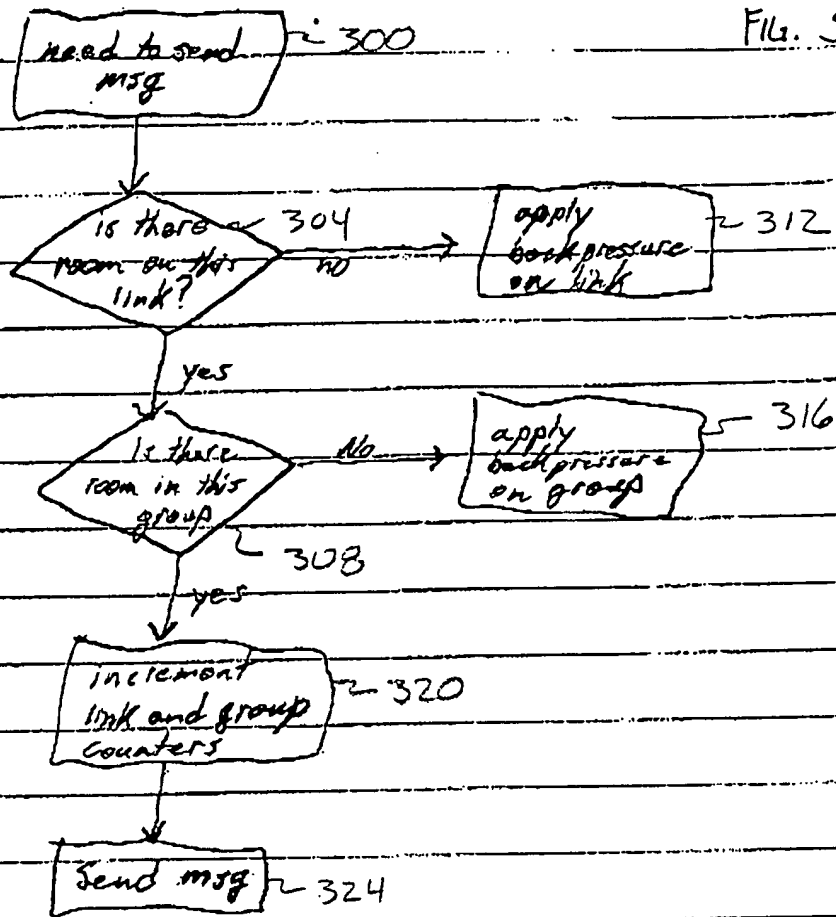 need to send
msg
300
FIG.
is there
room on this
link?
304
no
apply
backpressure
on link
312
yes
Is there
room in this
group
308
No
apply
backpressure
on group
316
yes
increment
link and group
counters
320
Send msg
324